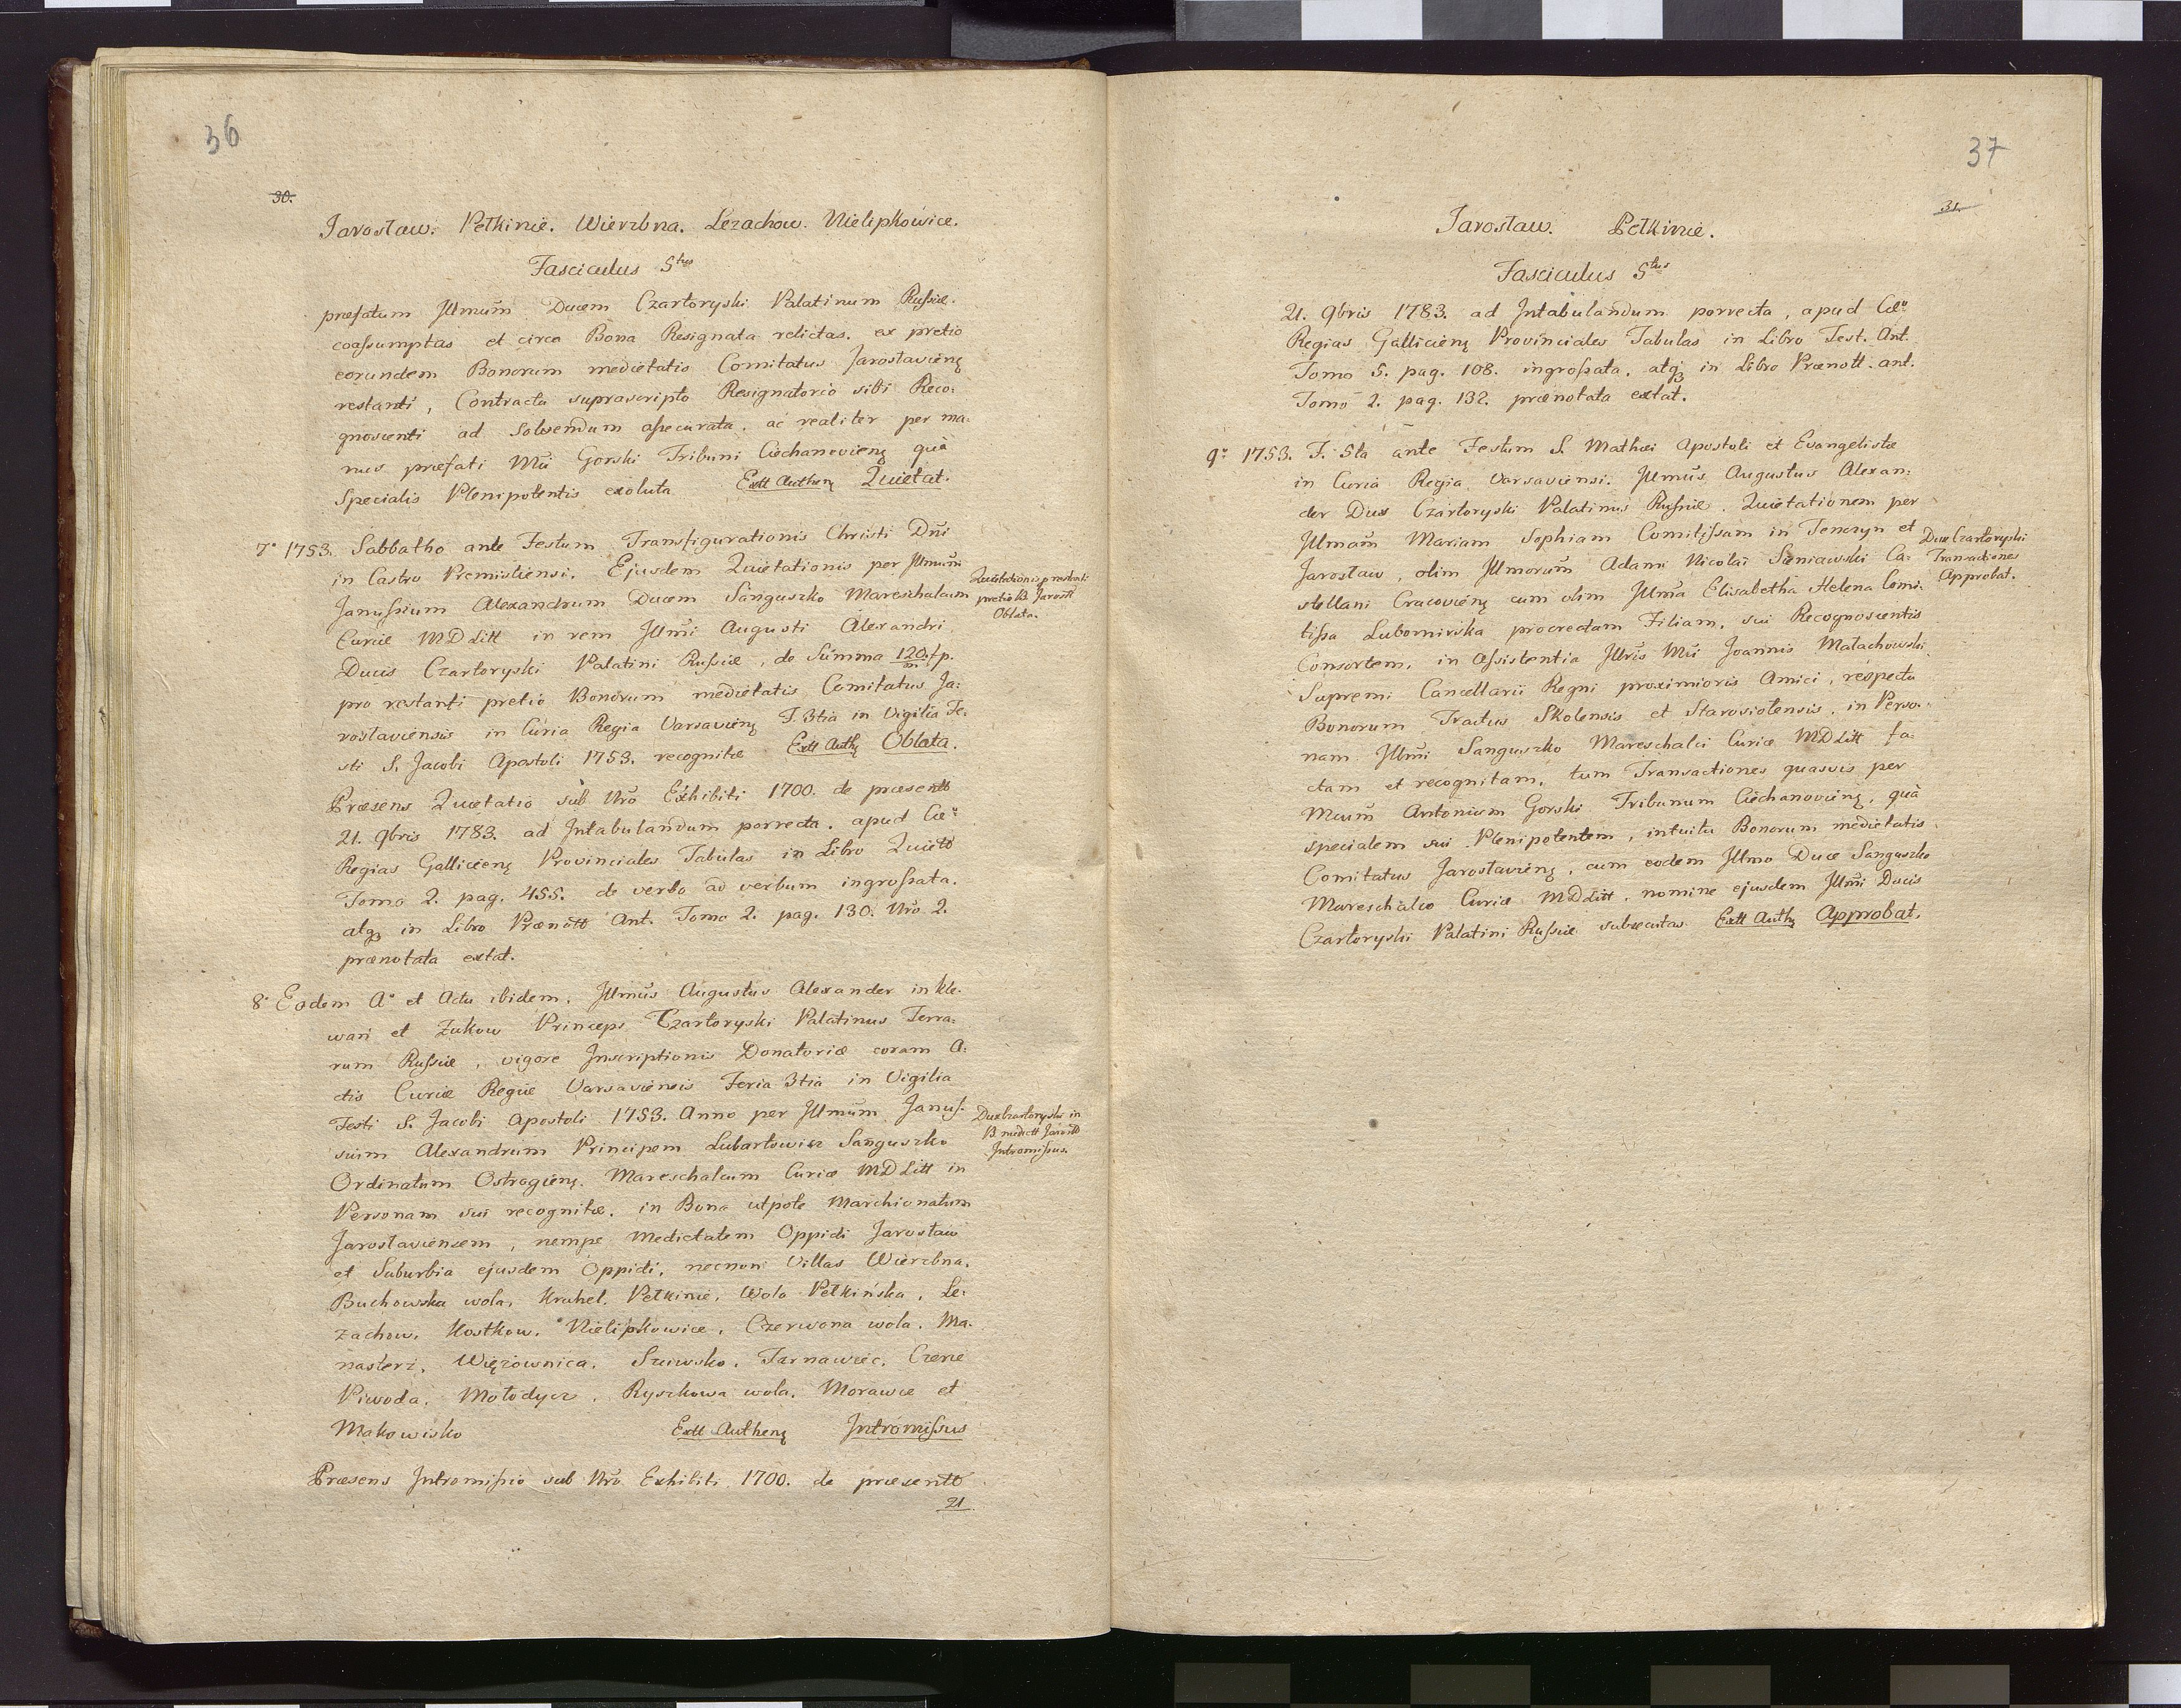 36
30.
Jarosław. Pełkinie. Wierzbna. Lezachow. Nielipkowice.
Fasciculus 5tus
præfatum Illmum Ducem Czartoryski Palatinum Russiæ.
coassumptas et circa Bona Resignata relictas, ex pretio
eorundem Bonorum medietatis Comitatus Jarosłavienę
restanti, Contractu suprascripto Resignatorio sibi Reco:
gnoscenti ad solvendum assecurata, ac realiter per ma:
nus præfati Mci Gorski Tribuni Ciechanovienę quà
Specialis Plenipotentis exoluta Extt Authenę Quietat.
7° 1753. Sabbatho ante Festum Transfigurationis Christi Dñi
in Castro Premisliensi. Ejusdem Quietationis per Illmum
Janussium Alexandrum Ducem Sanguszko Mareschalcum
Curiæ MDLitt in rem Illmi Augusti Alexandri
Ducis Czartoryski Palatini Russiæ, de Summa 120/m fp.
pro restanti pretio Bonorum medietatis Comitatus Ja:
rosłaviensis in Curia Regia Varsavienę F. 3tia in Vigilia Fe:
sti S. Jacobi Apostoli 1753. recognitæ Extt Authę Oblata.
Quietationis pro restanti
pretio B. Jarosłł
Oblata.
Præsens Quietatio sub Nro Exhibiti 1700. de præsentt
21. 9bris 1783. ad Intabulandum porrecta, apud Cæ°
Regias Gallicienę Provinciales Tabulas in Libro Quiett
Tomo 2. pag. 455. de verbo ad verbum ingrossata.
atqȝ in Libro Prænott Ant. Tomo 2. pag. 130. Nro 2.
prænotata extat.
8° Eodem A° et Actu ibidem, Illmus Augustus Alexander in Kle:
wań et Żukow Princeps Czartoryski Palatinus Terra:
rum Russiæ, vigore Inscriptionis Donatoriæ coram A:
ctis Curiæ Regiæ Varsaviensis Feria 3tia in Vigilia
Festi S. Jacobi Apostoli 1753. Anno per Illmum Janus:
sium Alexandrum Principem Lubartowicz Sanguszko
Ordinatum Ostrogienę. Mareschalcum Curiæ MDLitt in
Personam sui recognitæ, in Bona utpote Marchionatum
Jarosłaviensem, nempe Medietatem Oppidi Jarosław
et Suburbia ejusdem Oppidi, necnon Villas Wierzbna,
Buchowska wola, Kruhel, Pełkinie, Wola Pełkińska, Le:
zachow, Kostkow, Nielipkowice, Czerwona wola, Ma:
nasterz, Więzownica, Surowsko, Tarnawiec, Czerie
Piwoda, Mołodycz, Ryszkowa wola, Morawce et
Makowisko Extt Authenę Intromissus
Dux Czartoryski in
B. mediett Jarosłł
Intromissus.
Præsens Intromissio sub Nro Exhibiti 1700. de præsentt
21
37
31.
Jarosław. Pełkinie.
Fasciculus 5tus
21. 9bris 1783. ad Intabulandum porrecta, apud Cæ°
Regias Gallicienę Provinciales Tabulas in Libro Test. Ant.
Tomo 5. pag. 108. ingrossata, atqȝ in Libro Prænott. ant.
Tomo 2. pag. 132. prænotata extat.
9° 1753. F. 5ta ante Festum S. Mathæi Apostoli et Evangelistæ
in Curia Regia Varsaviensi. Illmus Augustus Alexan:
der Dux Czartoryski Palatinus Russiæ. Quietationem per
Illmam Mariam Sophiam Comitissam in Tenczyn et
Jarosław, olim Illmorum Adami Nicolai Sieniawski Ca:
stellani Cracovienę cum olim Illma Elisabetha Helena Comi:
tissa Lubomirska procreatam Filiam, sui Recognoscentis
Consortem, in Assistentia Illris Mci Joannis Małachowski
Supremi Cancellarii Regni proximioris Amici, respectu
Bonorum Tractus Skolensis et Starosiolensis, in Perso:
nam Illmi Sanguszko Mareschalci Curiæ MDLitt fa:
ctam et recognitam, tum Transactiones quasvis per
Mcum Antonium Gorski Tribunum Ciechanovienę, quà
specialem sui Plenipotentem, intuitu Bonorum medietatis
Comitatus Jarosłavienę, cum eodem Illmo Duce Sanguszko
Mareschalco Curiæ MDLitt, nomine ejusdem Illmi Ducis
Czartoryski Palatini Russiæ subsecutas Extt Authę Approbat.
Dux Czartoryski
Transactiones
Approbat.